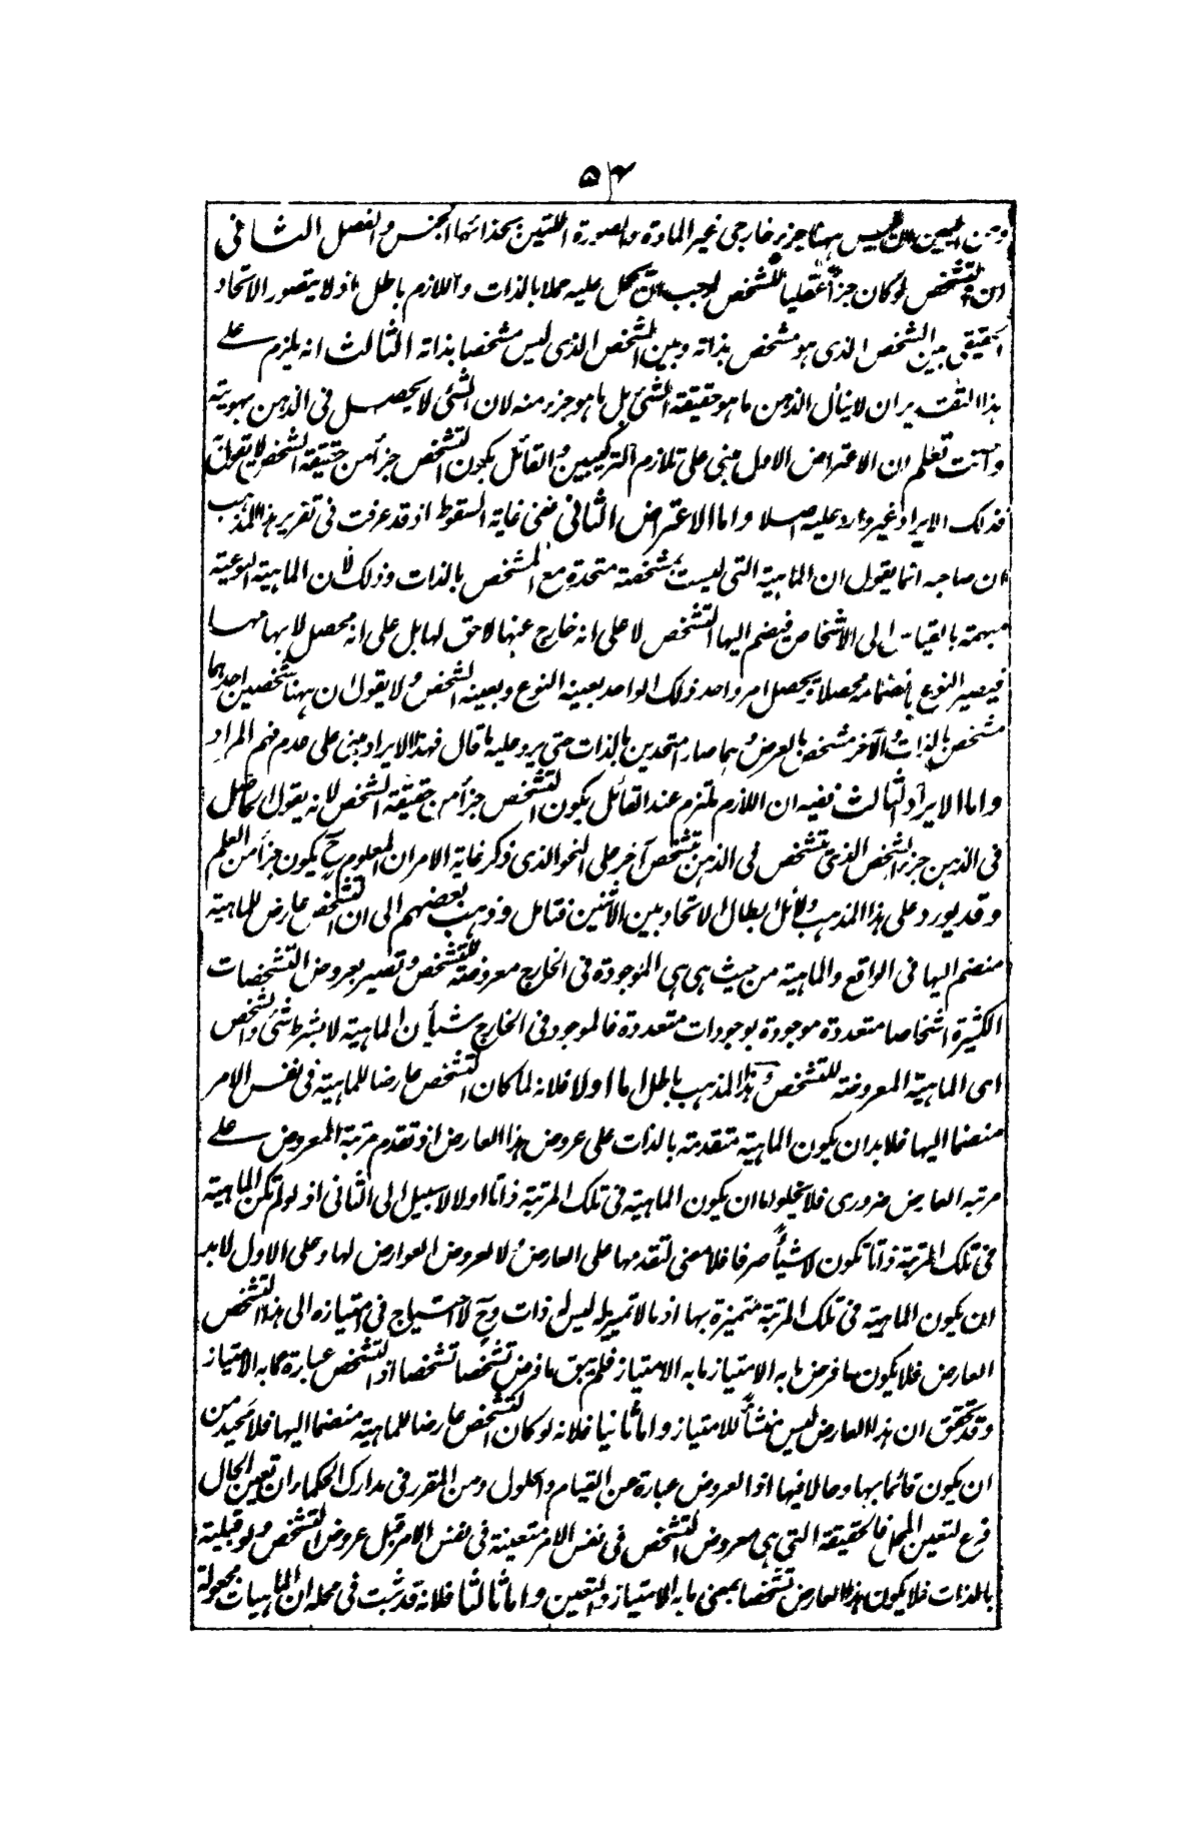 ٥٤
ومن البين ان ليس ههنا جزء خارجى غير المادة والصورة اللتين بحذائهما الجنس والفصل الثانى
ان التشخص لو كان جزأ عقليا للشخص لوجب ان يحمل عليه حملا بالذات واللازم باطل اذ لا يتصور الاتحاد
الحقيقى بين الشخص الذى هو مشخص بذاته وبين الشخص الذى ليس مشخصا بذاته الثالث انه يلزم على
هذا التقدير ان لا ينال الذهن ما هو حقيقة الشئ بل ما هو جزء منه لان الشئ لا يحصل فى الذهن بهويته
وانت تعلم ان الاعتراض الاول مبنى على تلازم التركيبين والقائل بكون التشخص جزأ من حقيقة الشخص لا يقول به
فذلك الايراد غير وارد عليه اصلا واما الاعتراض الثانى ففى غاية السقوط اذ قد عرفت فى تقرير هذا المذهب
ان صاحبه انما يقول ان الماهية التى ليست بمشخصة متحدة مع المشخص بالذات وذلك لان الماهية النوعية
مبهمة بالقياس الى الاشخاص فينضم اليها التشخص لا على انه خارج عنها لاحق لها بل على انه محصل لابهامها
فيصير النوع بانضمامه محصلا ويحصل امر واحد ذلك الواحد بعينه النوع وبعينه الشخص ولا يقول ان ههنا شخصين احدهما
مشخص بالذات والآخر مشخص بالعرض وهما صارا متحدين بالذات حتى يرد عليه ما قال فهذا الايراد مبنى على عدم فهم المراد
واما الايراد الثالث ففيه ان اللازم ملتزم عند القائل بكون التشخص جزأ من حقيقة الشخص لانه يقول الحاصل
فى الذهن جزء الشخص الذى تشخص فى الذهن بتشخص آخر على النحو الذى ذكر غاية الامر ان المعلوم ح يكون جزأ من العلم
وقد يورد على هذا المذهب دلائل ابطال الاتحاد بين الاثنين فتامل وذهب بعضهم الى ان التشخص عارض للماهية
منضم اليها فى الواقع والماهية من حيث هى هى الموجودة فى الخارج معروضة للتشخص وتصير بعروض التشخصات
الكثيرة اشخاصا متعددة موجودة بوجودات متعددة فالموجود فى الخارج شيأن الماهية لا بشرط شئ والشخص
اى الماهية المعروضة للتشخص وهذا المذهب باطل اما اولا فلانه لما كان التشخص عارضا للماهية فى نفس الامر
منضما اليها فلا بد ان يكون الماهية متقدمة بالذات على عروض هذا العارض اذ تقدم مرتبة المعروض على
مرتبة العارض ضرورى فلا يخلو اما ان يكون الماهية فى تلك المرتبة ذاتا او لا لا سبيل الى الثانى اذ لو لم تكن الماهية
فى تلك المرتبة ذاتا تكون لا شيأ صرفا فلا معنى لتقدمها على العارض ولا لعروض العوارض لها وعلى الاول لا بد
ان يكون الماهية فى تلك المرتبة متميزة بها اذ ما لا تميز له ليس له ذات وح لا احتياج فى امتيازه الى هذا التشخص
العارض فلا يكون ما فرض ما به الامتياز ما به الامتياز فلم يبق ما فرض تشخصا تشخصا اذ التشخص عبارة عما به الامتياز
وقد تحقق ان هذا العارض ليس منشأ للامتياز واما ثانيا فلانه لو كان التشخص عارضا للماهية منضما اليها فلا محيد من
ان يكون قائما بها وحالا فيها اذ العروض عبارة عن القيام والحلول ومن المقرر فى مدارك الحكماء ان تعين الحال
فرع لتعين المحل فالحقيقة التى هى معروض التشخص فى نفس الامر متعينة فى نفس الامر قبل عروض التشخص ولو قبلية
بالذات فلا يكون هذا العارض تشخصا بمعنى ما به الامتياز والتعين واما ثالثا فلانه قد ثبت فى محله ان الماهيات مجعولة